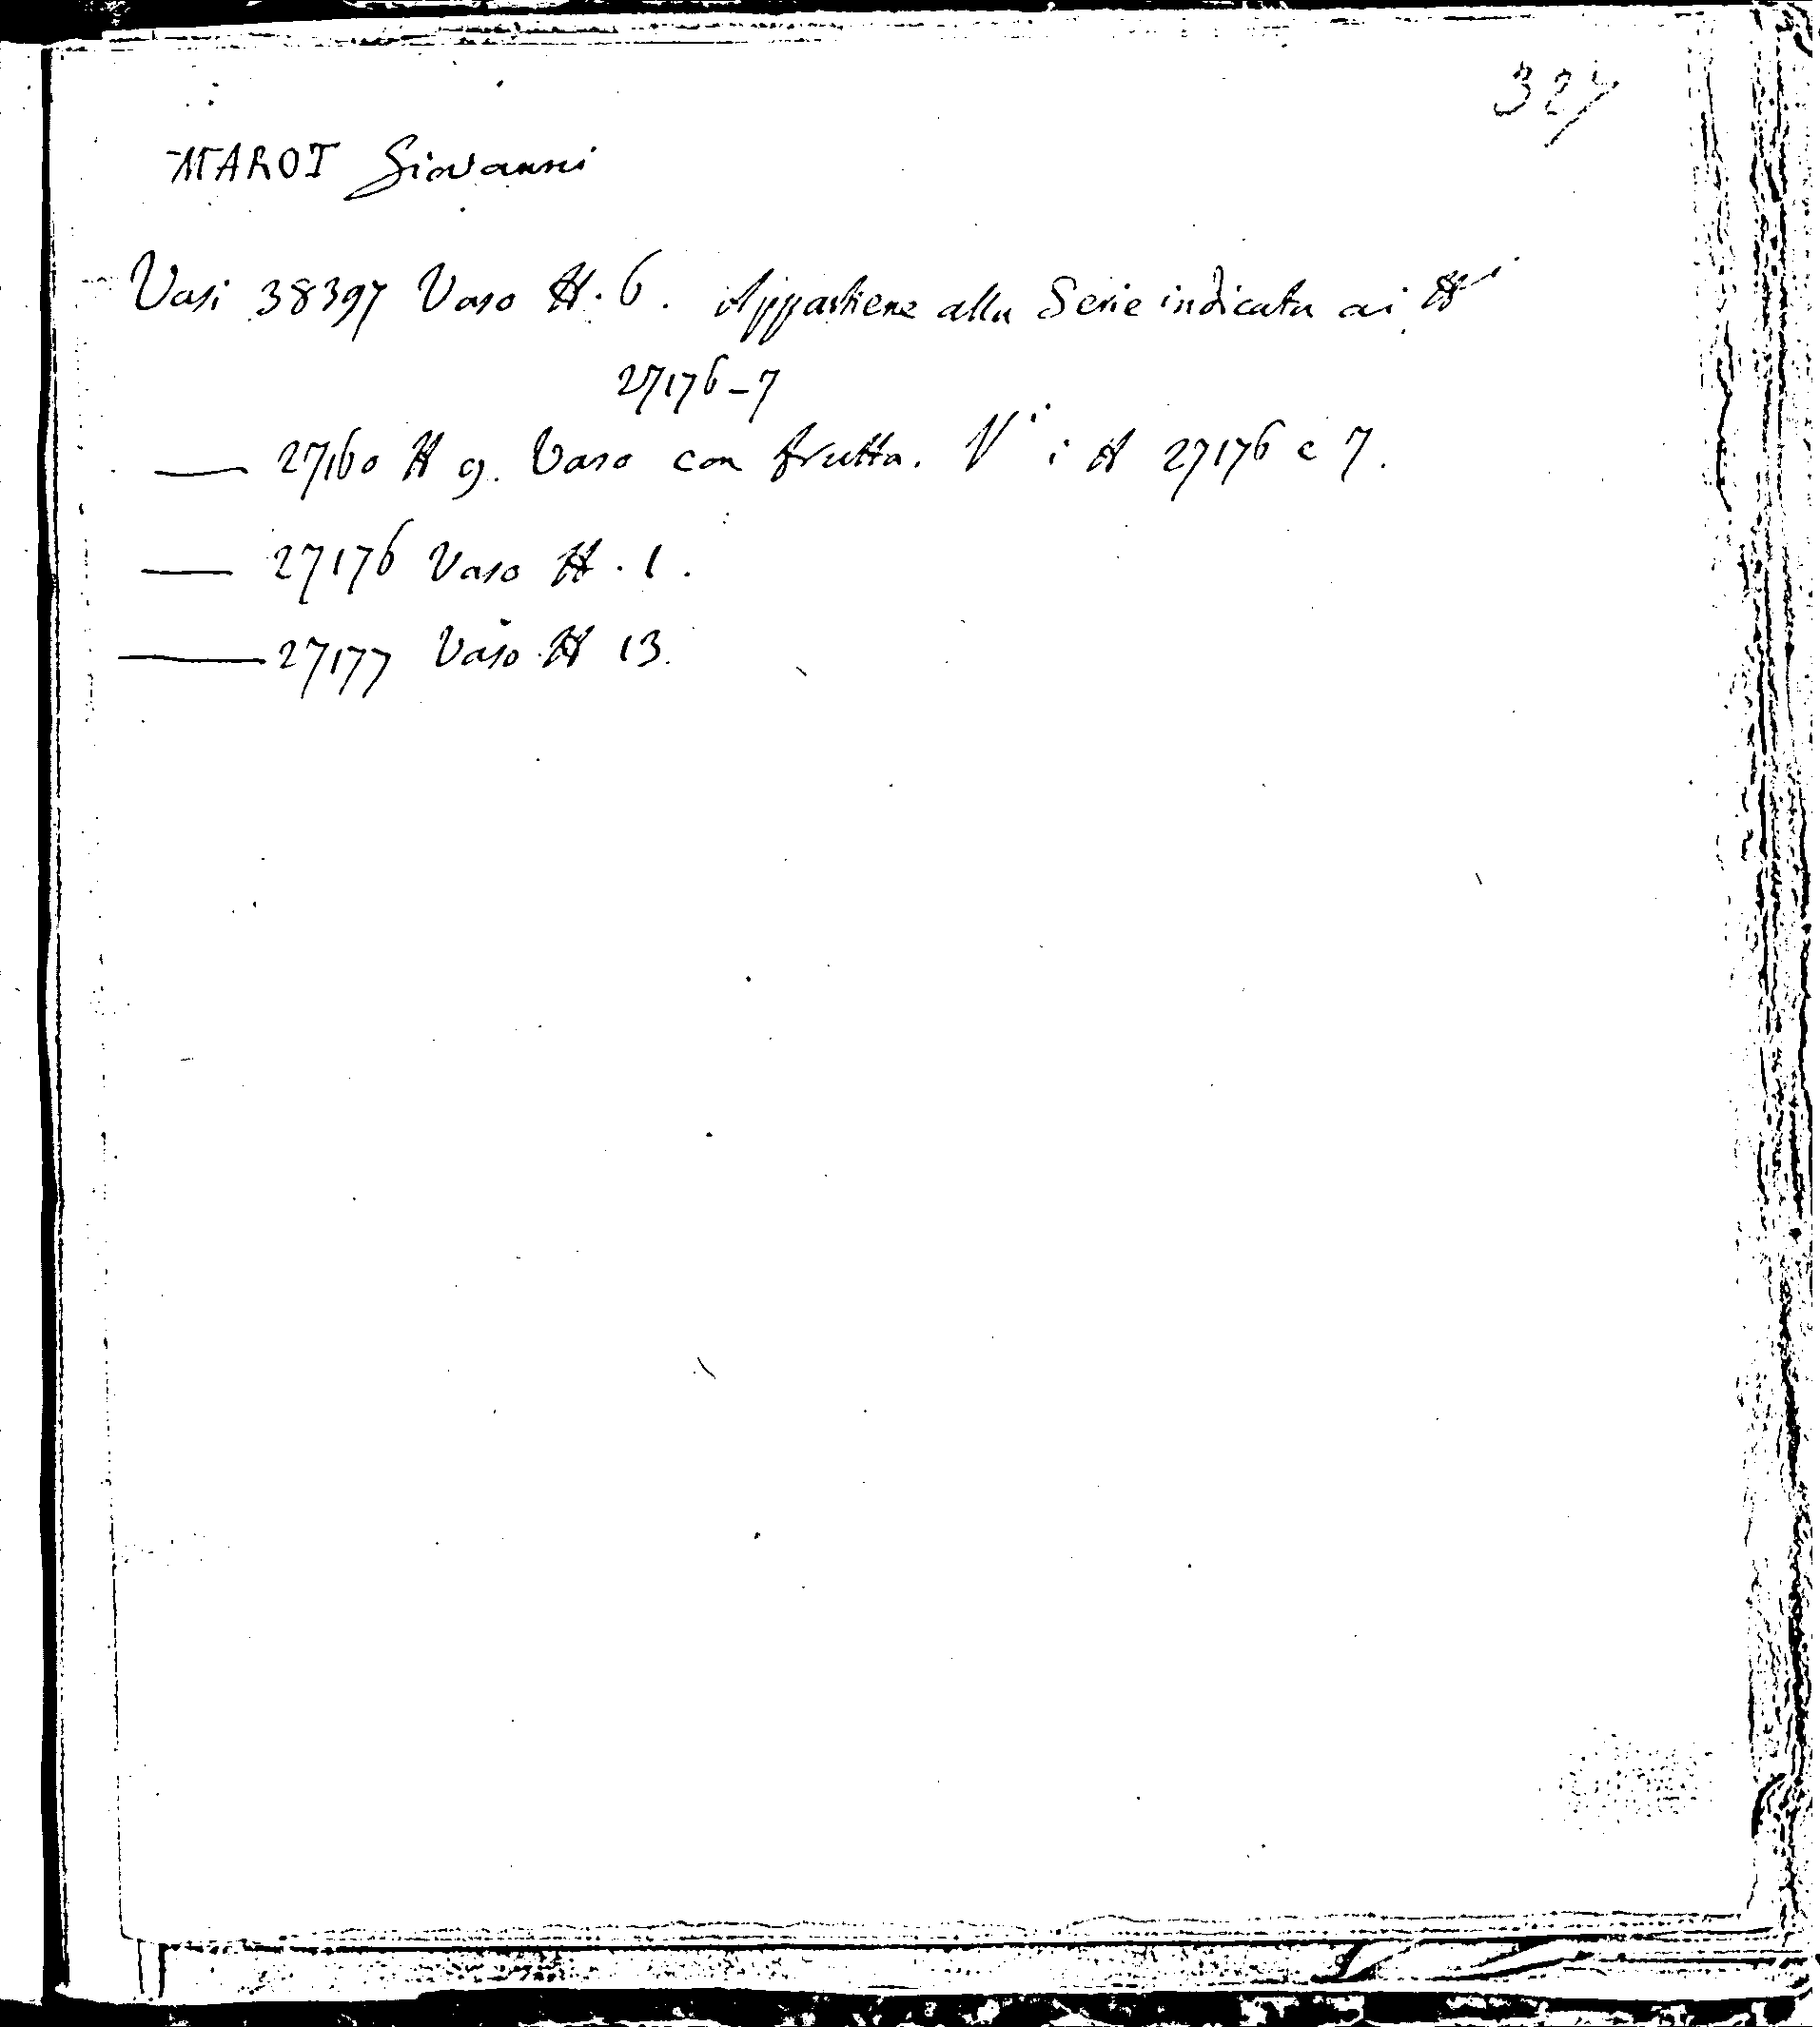 327
MAROT Giovanni
Vasi 38397 Vaso N. 6. Appartiene alla Serie indicata ai Nⁱ
27176-7
— 27160 N 9. Vaso con frutta. Vⁱ i N 27176 e 7.
— 27176 Vaso N. 1.
— 27177 Vaso N 13.